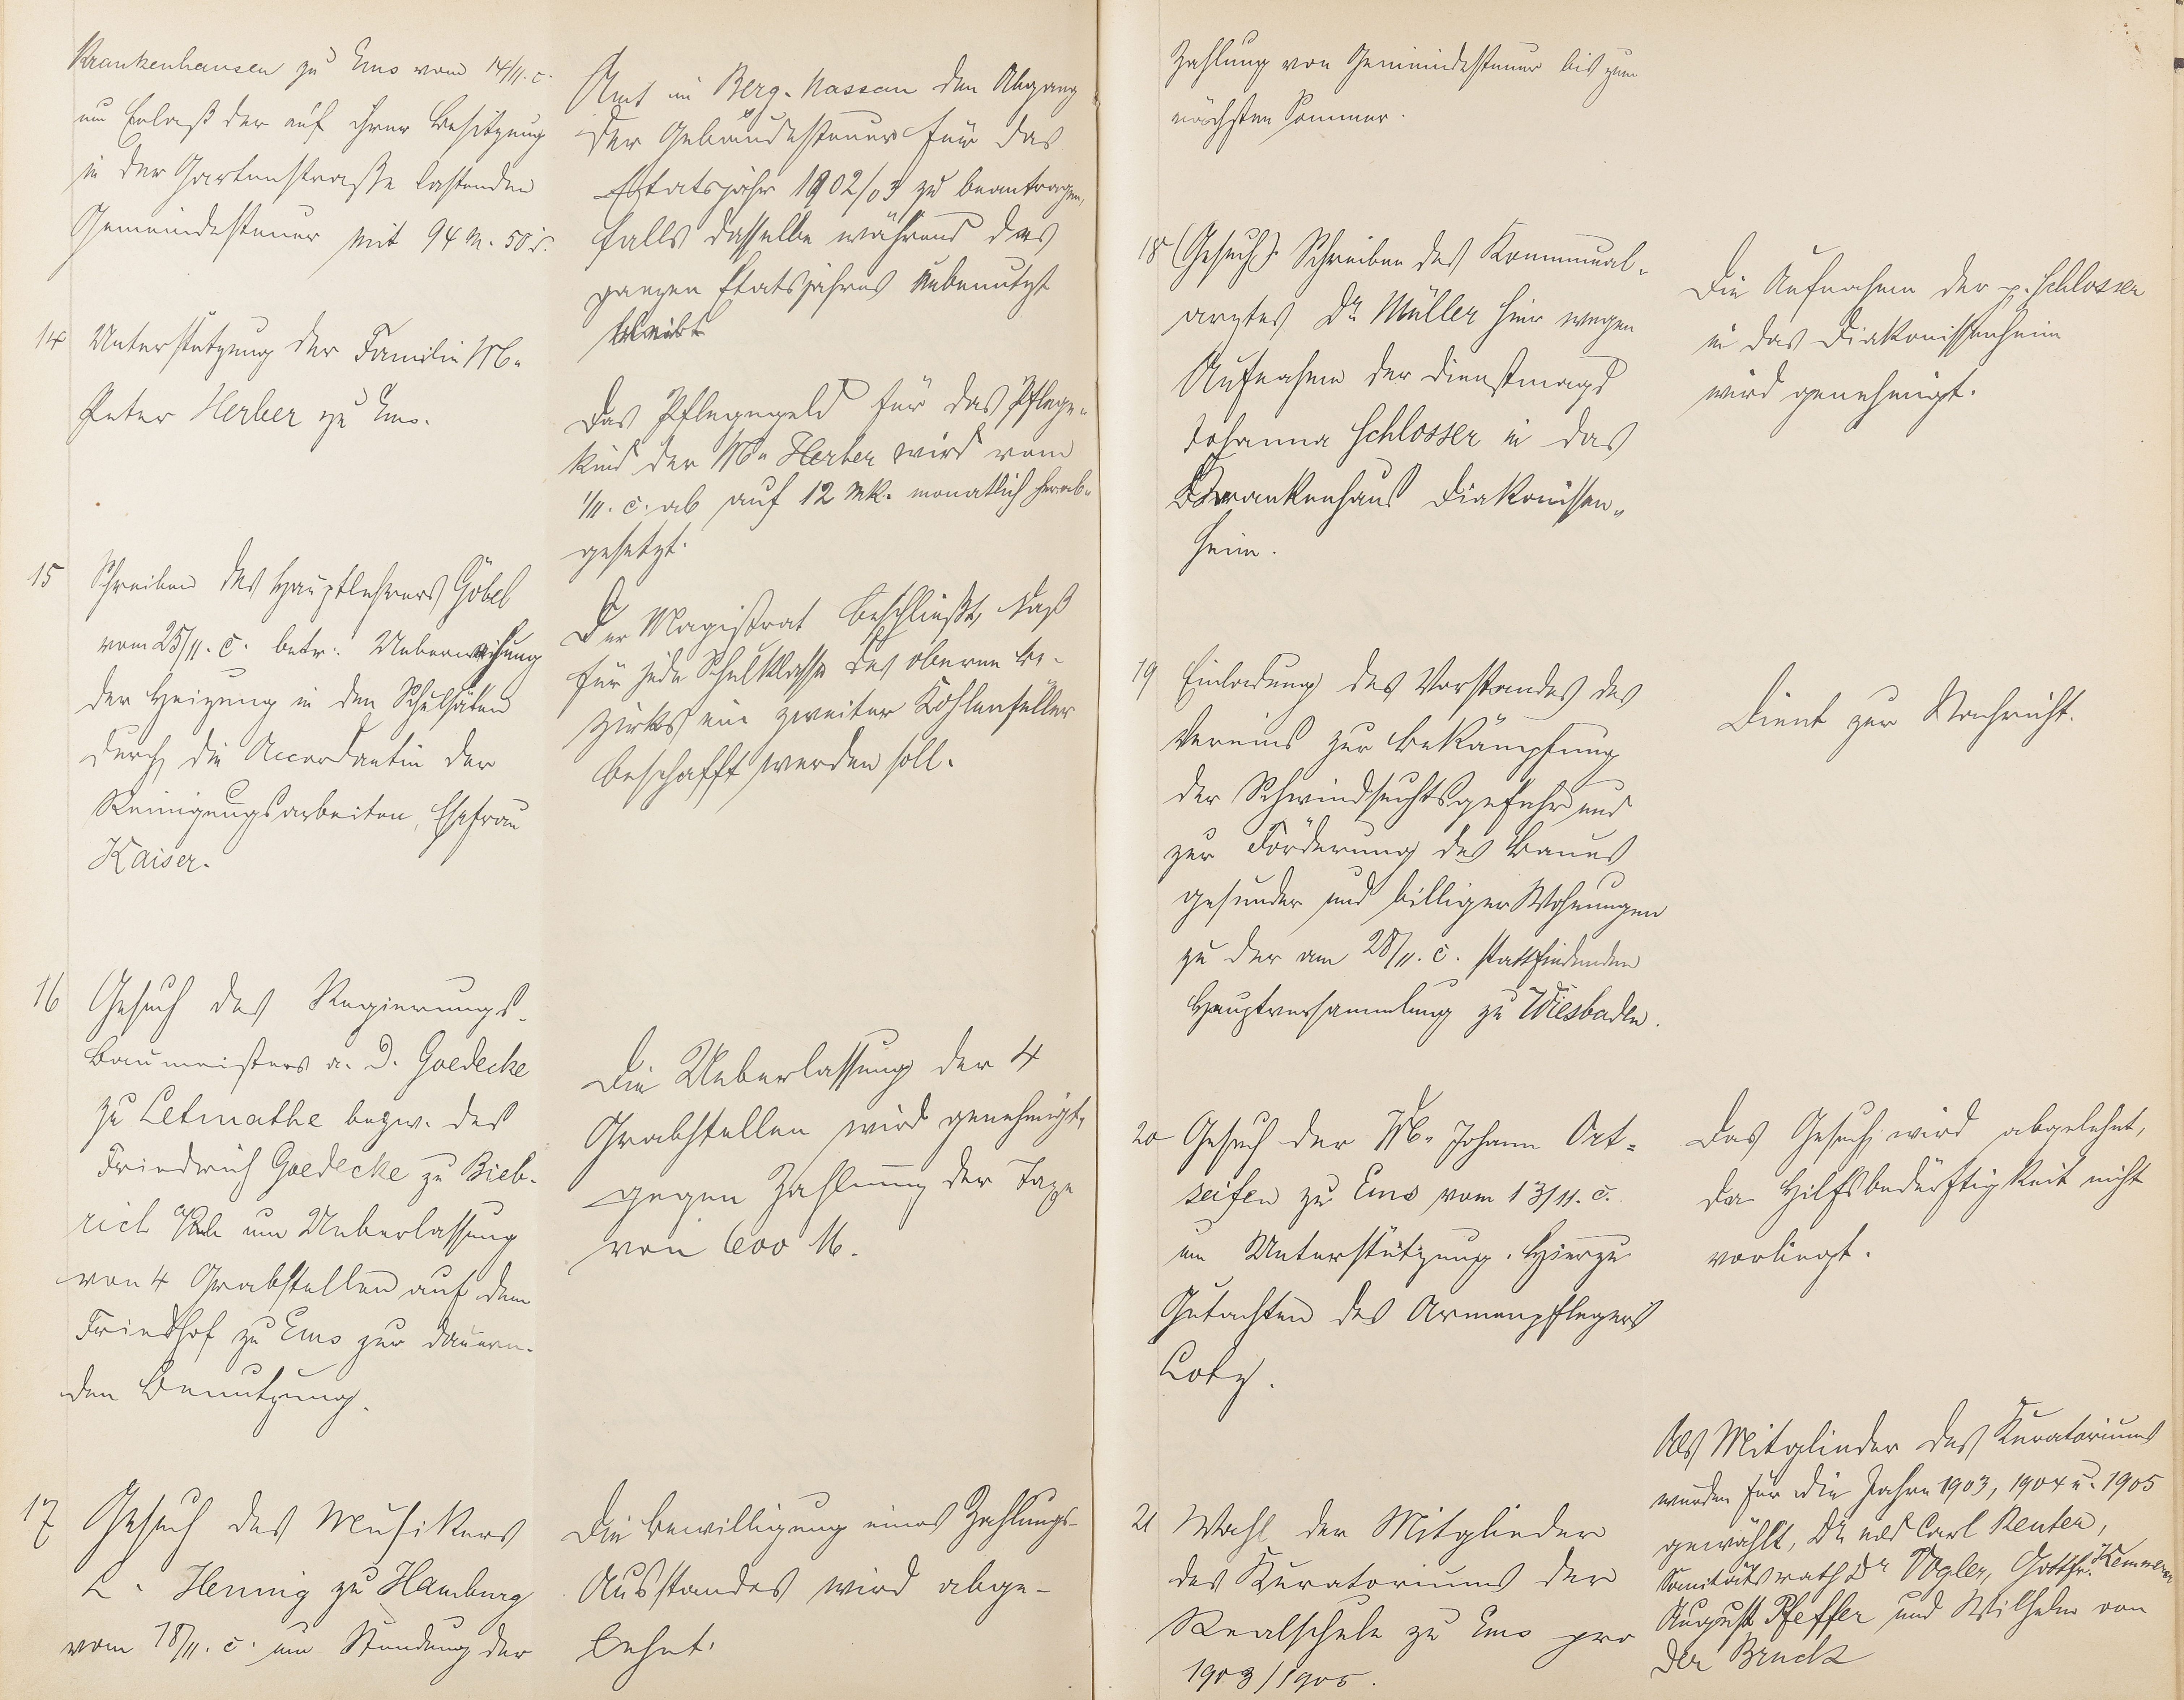 Krankenhausen zu Ems vom 14/11. c.
um Erlaß der auf ihrer Besitzung
in der Gartenstraße lastenden
Gemeindesteuer mit 94 M. 50 d.
14 Unterstützung der Familie W.
Peter Herber zu Ems.
15 Schreiben des Hauptlehrers Göbel
vom 25/11. c. betr. Ueberweisung
der Heizung in den Schulsälen
durch die Accordantin der
Reinigungsarbeiten, Ehefrau
Kaiser.
16 Gesuch des Regierungs-
Baumeisters a. D. Goedecke
zu Letmathe bezw. des
Friedrich Goedecke zu Bieb-
rich um Ueberlassung
von 4 Grabstellen auf dem
Friedhof zu Ems zur dauern-
den Benutzung.
17 Gesuch des Musikers
L. Hennig zu Hamburg
vom 18/11. c. um Stundung der
Amt in Berg-Nassau den Abgang
der Gebäudesteuer für das
Etatsjahr 1902/03 zu beantragen,
falls dasselbe während des
ganzen Etatsjahres unbenutzt
bleibt
Das Pflegegeld für das Pflege-
kind der W. Herber wird vom
1/11. c. ab auf 12 Mk. monatlich herab-
gesetzt.
Der Magistrat beschließt, daß
für jede Schulklasse des oberen Be-
zirks ein zweiter Kohlenfüller
beschafft werden soll.
Die Ueberlassung der 4
Grabstellen wird genehmigt,
gegen Zahlung der Taxe
von 600 M.
Die Bewilligung eines Zahlungs-
Ausstandes wird abge-
lehnt.
Zahlung von Gemeindesteuer bis zum
nächsten Sommer.
18 (Gesuch). Schreiben des Kommunal-
arztes Dr. Müller hier wegen
Aufnahme der Dienstmagd
Johanna Schlosser in das
Krankenhaus Diakonissen-
heim.
19 Einladung des Vorstandes des
Vereins zur Bekämpfung
der Schwindsuchtsgefahr und
zur Förderung des Baues
gesunder und billiger Wohnungen
zu der am 28/11. c. stattfindenden
Hauptversammlung zu Wiesbaden.
20 Gesuch der W. Johann Ort-
seifen zu Ems vom 13/11. c.
um Unterstützung. Hierzu
Gutachten des Armenpflegers
Lotz.
21 Wahl der Mitglieder
des Kuratoriums der
Realschule zu Ems pro
1903/1905.
Die Aufnahme der p. Schlosser
in das Diakonissenheim
wird genehmigt.
Dient zur Nachricht.
Das Gesuch wird abgelehnt,
da Hilfsbedürftigkeit nicht
vorliegt.
Als Mitglieder des Kuratoriums
wurden für die Jahre 1903, 1904 u. 1905
gewählt, Dr. med Carl Reuter,
Sanitätsrath Dr Vogler, Gottfr. Kemmerer
August Pfeffer und Wilhelm von
der Bruck